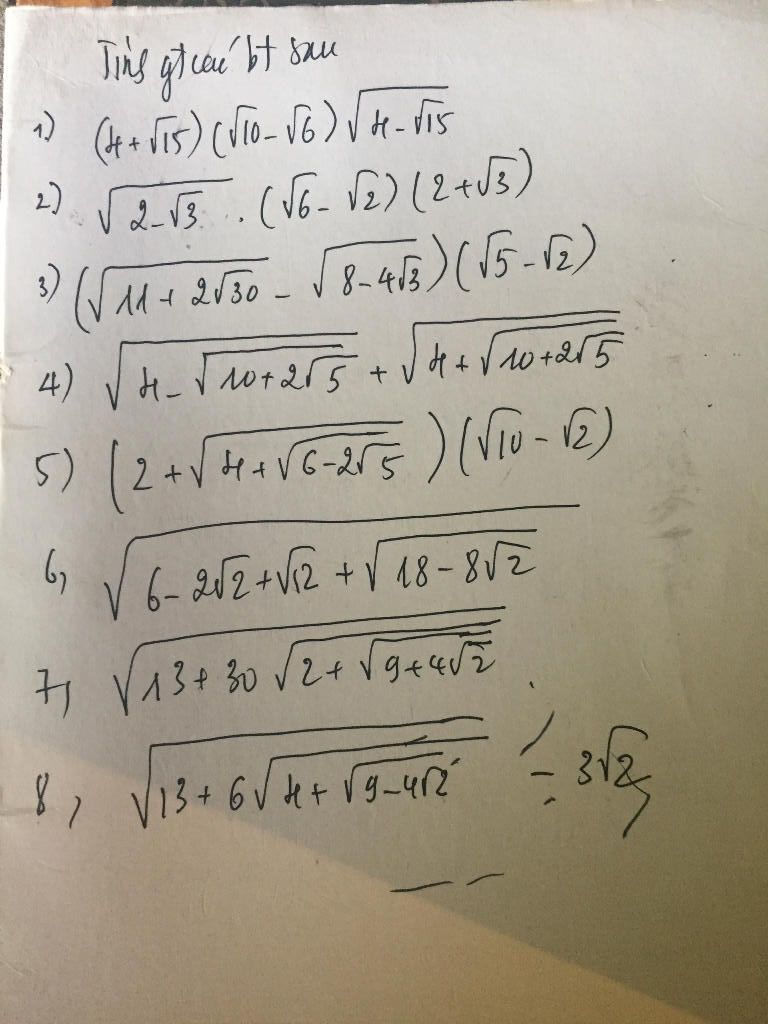 Tính gt các bt sau
1) (4+√15)(√10-√6)√(4-√15)
2) √(2-√3) . (√6-√2)(2+√3)
3) (√(11+2√30) - √(8-4√3))(√5-√2)
4) √(4-√(10+2√5)) + √(4+√(10+2√5))
5) (2+√(4+√(6-2√5)))(√10-√2)
6, √(6-2√2+√12+√(18-8√2))
7, √(13+30√(2+√(9+4√2)))
8, √(13+6√(4+√(9-4√2))) - 3√2